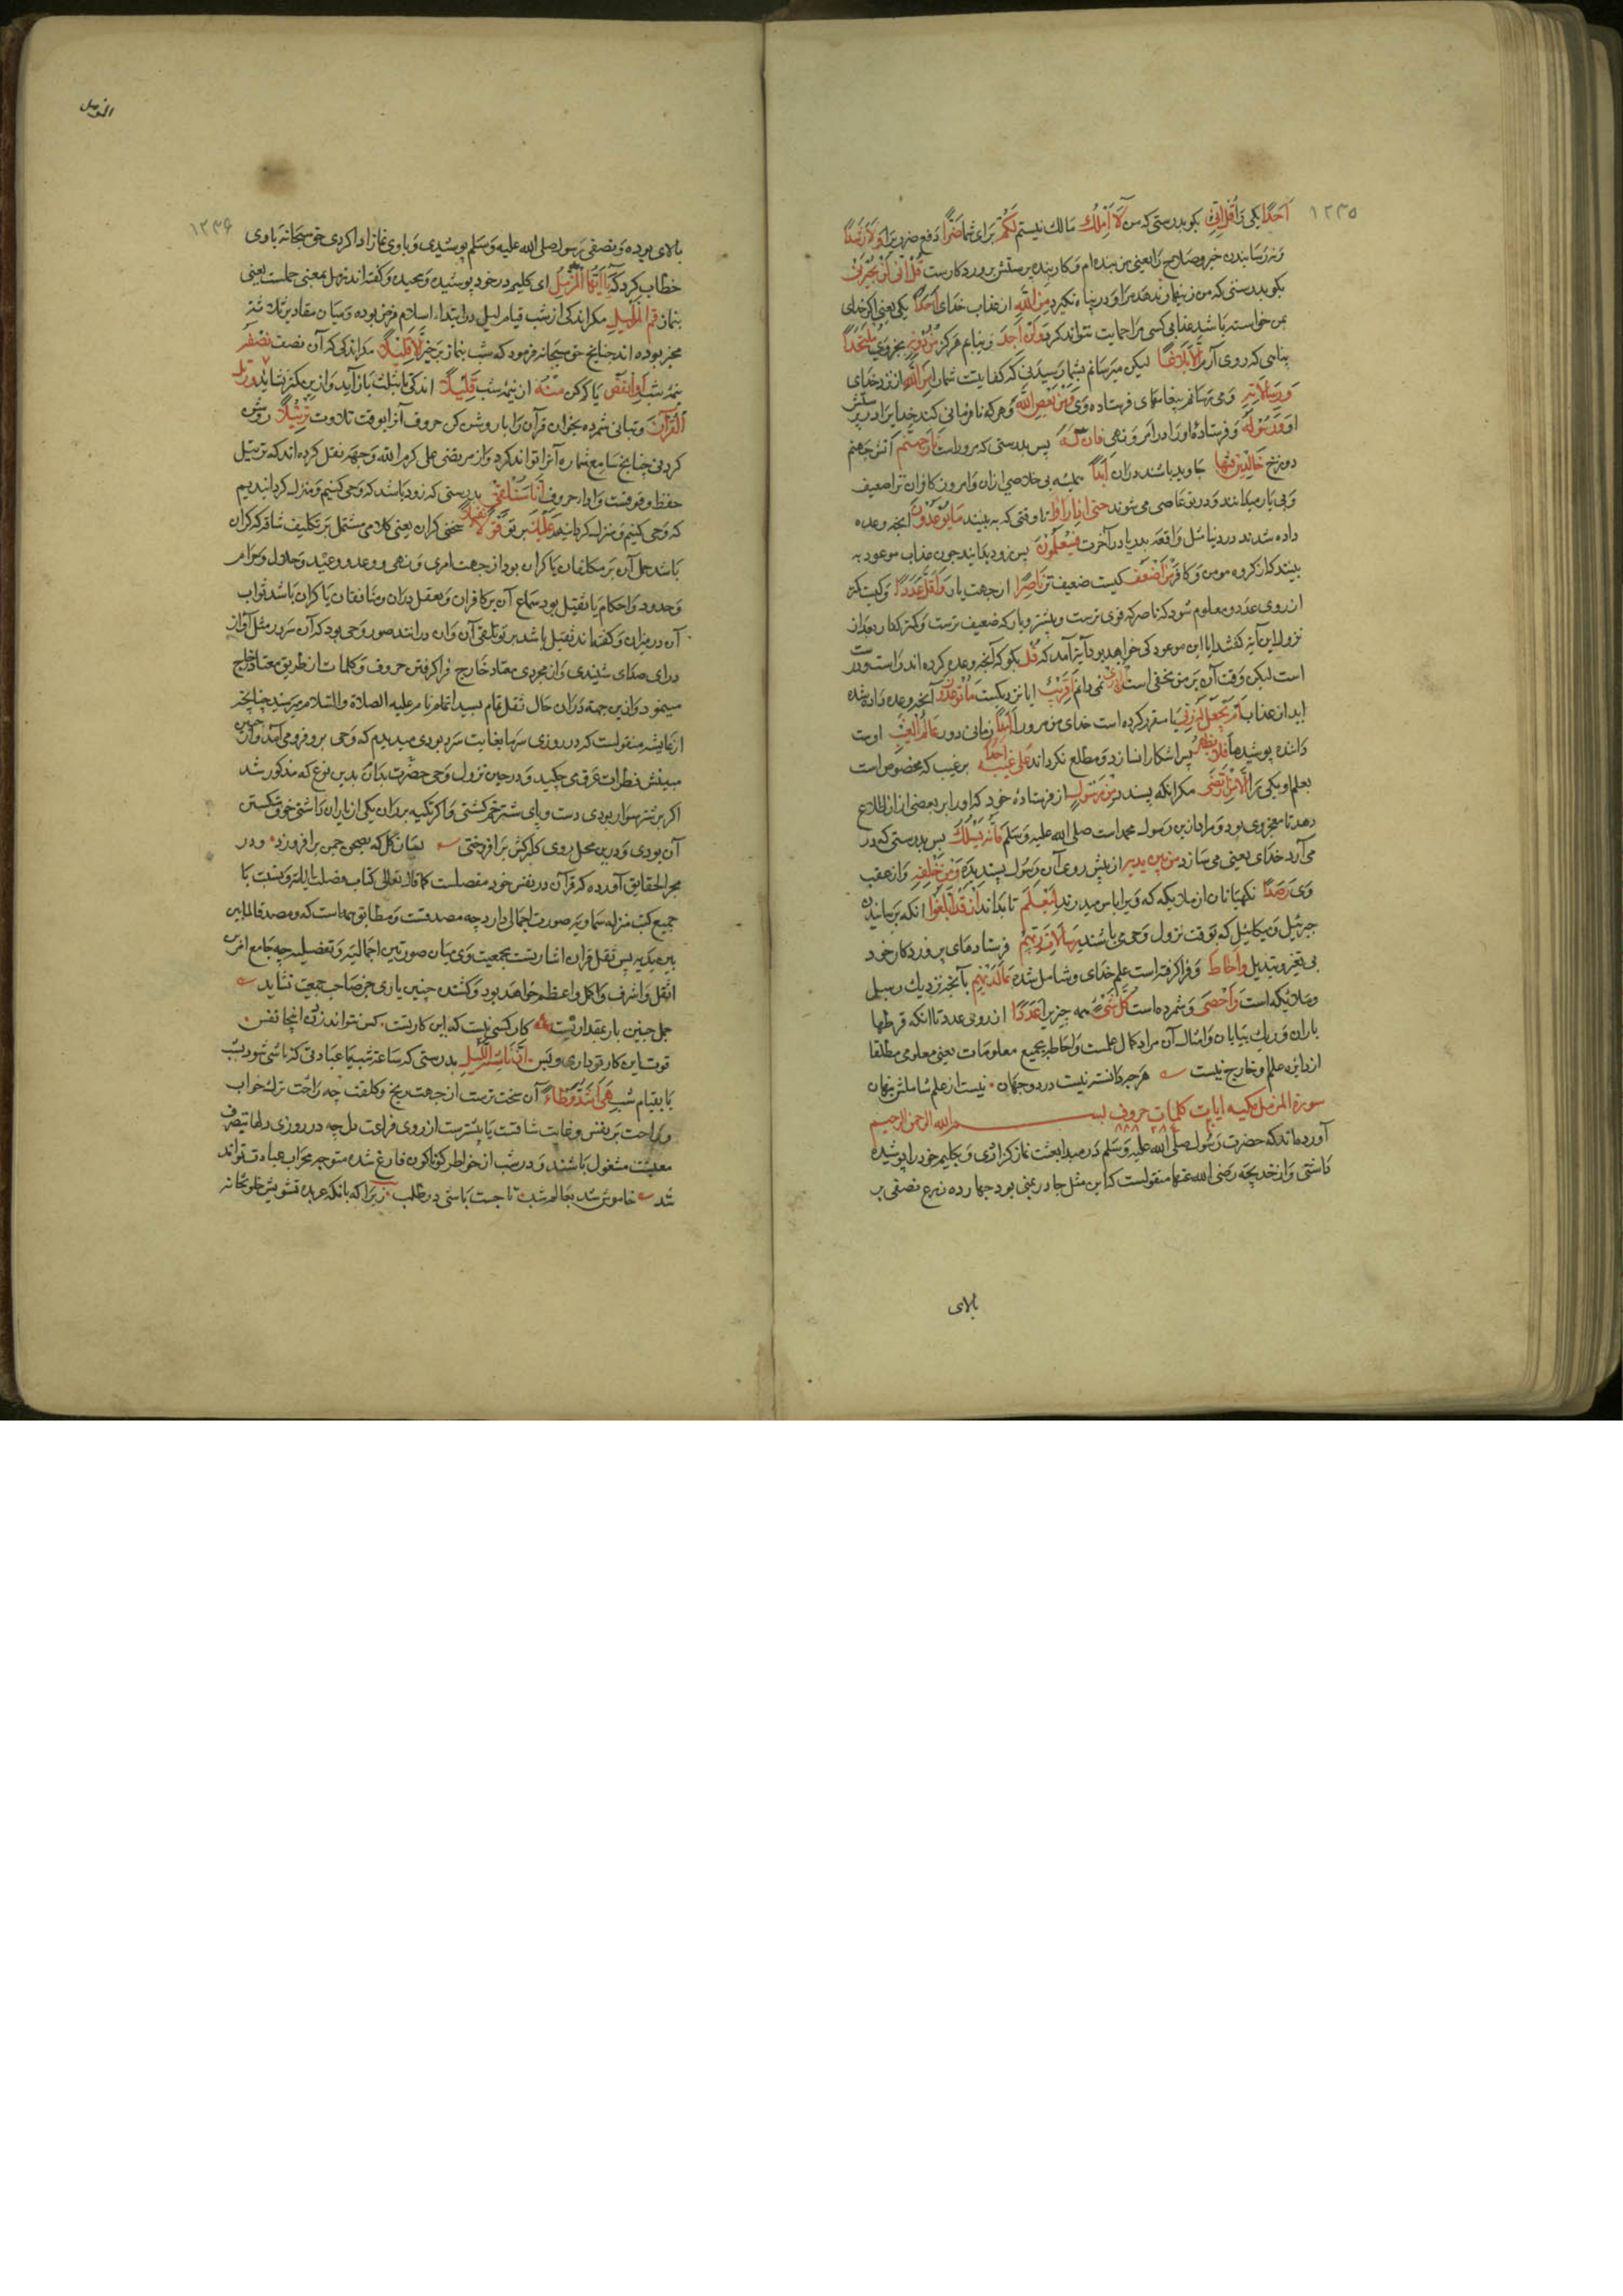 ١٢٣٥
أَحَدًا یکی را قُلْ إِنِّی بگو بدرستی که من لَا أَمْلِكُ مالك نیستم لَكُمْ برای شما ضَرًّا دفع ضرر را وَلَا رَشَدًا
و نه رسانیدن خیر و صلاح را یعنی من بنده ام و کار بنده پرستش پروردکارست قُلْ إِنِّی لَنْ یُجِیرَنِی
بگو بدرستی که من زینهار ندهد مرا و در پناه نگیرد مِنَ اللَّهِ از عذاب خدای أَحَدٌ یکی یعنی اگر خدای
بمن خواسته باشد عذابی کسی مرا حمایت نتواند کرد وَلَنْ أَجِدَ و نیابم هرگز مِنْ دُونِهِ بجز وی مُلْتَحَدًا
پناهی که روی آرم إِلَّا بَلَاغًا لیکن میرسانم بشما رسیدنی که کفایتست شما را مِنَ اللَّهِ از نزد خدای
وَرِسَالَاتِهِ و می رسانم پیغامهای فرستاده وی وَمَنْ یَعْصِ اللَّهَ و هر که نافرمانی کند خدایرا در پرستش
او وَرَسُولَهُ و فرستادهٔ او را در امر و نهی فَإِنَّ لَهُ پس بدرستی که مرو راست نَارَ جَهَنَّمَ آتش جهنم
دوزخ خَالِدِینَ فِیهَا جاوید باشند در آن أَبَدًا همیشه بی خلاصی از آن و امروز کافران ترا ضعیف
و بی یار میدانند و در تو عاصی می شوند حَتَّى إِذَا رَأَوْا تا وقتی که به بینند مَا یُوعَدُونَ آنچه وعده
داده شدند در دنیا مثل واقعه بدر یا در آخرت فَسَیَعْلَمُونَ پس زود بدانند چون عذاب موعود به
بینند که از گروه مومن و کافر مَنْ أَضْعَفُ کیست ضعیف تر نَاصِرًا از جهت یار وَأَقَلُّ عَدَدًا و کیست کمتر
از روی عدد و معلوم شود که ناصر که قوی ترست و بیشتر و یار که ضعیف ترست و کمتر کفار بعد از
نزول این آیه گفتند ایا این موعود کی خواهد بود آیة آمد که قُلْ بگو که آنچه وعده کرده اند راست و درست
است لیکن وقت آن بر من مخفی است إِنْ أَدْرِی نمی دانم أَقَرِیبٌ ایا نزدیکست مَا تُوعَدُونَ آنچه وعده داده شده
اید از عذاب أَمْ یَجْعَلُ لَهُ رَبِّی یا مقرر کرده است خدای من مرو را أَمَدًا زمانی دور عَالِمُ الْغَیْبِ اوست
داننده پوشیدها فَلَا یُظْهِرُ پس اشکارا نسازد و مطلع نکرداند عَلَى غَیْبِهِ أَحَدًا بر غیب که مخصوص است
بعلم او یکی را إِلَّا مَنِ ارْتَضَى مکر انکه پسندد مِنْ رَسُولٍ از فرستادهٔ خود که او را بر بعضی از ان اطلاع
دهد تا معجزهٔ وی بود و مراد ازین رسول محمد است صلی الله علیه وسلم فَإِنَّهُ یَسْلُكُ پس بدرستی که در
می آرد خدای یعنی می سازد مِنْ بَیْنِ یَدَیْهِ از پیش روی آن رسول پسندیده وَمِنْ خَلْفِهِ و از عقب
وی رَصَدًا نکهبانان از ملایکه که ویرا پاس میدارند لِیَعْلَمَ تا بداند أَنْ قَدْ أَبْلَغُوا انکه برسانیده
جبرئیل و میکائیل که بوقت نزول وحی می باشند رِسَالَاتِ رَبِّهِمْ فرستادهای پروردکار خود
بی تغییر و تبدیل وَأَحَاطَ و فرا گرفته است علم خدای و شامل شده بِمَا لَدَیْهِمْ بآنچه نزدیك رسل
و ملائیکه است وَأَحْصَى و شمرده است كُلَّ شَیْءٍ همه چیز را عَدَدًا از روی عدد تا آنکه قطرهای
باران و ریك بیابان و امثال آن مراد کمال علمست و احاطه بجمیع معلومات یعنی معلومی مطلقا
از دایره علم و خارج نیست هر چه دانستنیست در دو جهان نیست از علم شاملش پنهان
سورة المزمل مکیه ایات کلمات حروف بسم الله الرحمن الرحیم
آورده اند که حضرت رسول صلی الله علیه وسلم در مبدا بعثت نماز گزاردی و بکلیم خود را پوشیده
داشتی و از خدیجه رضی الله عنها منقولست که این مثل چادر یمنی بود چهارده ذرع نصفی بر
بالای
المزمل
١٢٣۶
بالای بوده و نصفی رسول صلی الله علیه وسلم پوشیدی و با وی نماز ادا کردی حق سبحانه با وی
خطاب کرد که یَا أَیُّهَا الْمُزَّمِّلُ ای کلیم در خود پوشیده و پیچیده و گفته اند تزمل بمعنی حملست یعنی
بنماز قُمِ اللَّیْلَ مکر اندکی از شب قیام لیل در ابتداء اسلام فرض بوده و میان مقادیر ثلاثه
مخیر بوده اند چنانچه حق سبحانه فرمود که شب بنماز برخیز إِلَّا قَلِیلًا مکر اندکی که آن نصف نِصْفَهُ
نیمهٔ شب أَوِ انْقُصْ یا کم کن مِنْهُ از نیمهٔ شب قَلِیلًا اندکی تا بثلث باز آید و ازین کمتر نشاید وَرَتِّلِ
الْقُرْآنَ و بتانی شمرده بخوان قرآن را با روشن کن حروف آنرا بوقت تلاوت تَرْتِیلًا روشن
کردنی چنانچه سامع شماره آنرا تواند کرد و از مرتضی علی کرم الله وجهه نقل کرده اند که ترتیل
حفظ وقوفست و ادا حروف إِنَّا سَنُلْقِی بدرستی که زود باشد که وحی کنیم و منزل کردانیدیم
که وحی کنیم و منزل کردانیم عَلَیْكَ بر تو قَوْلًا ثَقِیلًا سخنی کران یعنی کلامی مشتمل بر تکلیف شاقه که کران
باشد حمل آن بر مکلفان یا کران بود از جهت امر و نهی و وعد و وعید و حلال و حرام
و حدود و احکام یا ثقیل بود سماع آن بر کافران و تعقل بدان و منافقان یا کران باشد ثواب
آن در میزان و گفته اند ثقیل باشد بر تو تلقی آن
درای صدای شنیدی و از مجردی معتاد خارج فرا گرفتن حروف و کلمات از طریق معتاد خارج
مینمود و ازین جهت در ان حال ثقل تمام بسید انام علیه الصلاة والسلام میرسید چنانچه
از عایشه منقولست که در روزی سرما بغایت سرد بودی میدیدم که وحی برو فرو می آمد و از جبین
مبینش قطرات عرق می چکید و در حین نزول وحی حضرت بدان بدین نوع که مذکور شد
اگر بر شتر سوار بودی دست و پای شتر خم کشتی و اگر تکیه بر ران یکی از یاران داشتی خوف شکستن
آن بودی و درین محل روی گلبرکش بر افروختی بسان گل که بصبحی چمن بر افروزد و در
بحر الحقایق آورده که قرآن در نفس خود مفصلست کما قال تعالی کتاب فصلت آیاته و نسبت با
جمیع کتب منزله سماویه صورت اجمالی دارد چه مصدقست و مطابق همه است که ومصدقا لما بین
یدیه پس ثقل قران اشارتست بجمعیت وی میان صورتین اجمالیه و تفصیلیه چه جامع امرین
اثقل و اشرف و اکمل و اعظم خواهد بود و کشنده چنین باری جز صاحب جمعیت نشاید
حمل چنین بار بمقدار نیست کار کسی نیست که این کار نیست کس نتواند زدن انجا نفس
قوت این کار تو داری و بس إِنَّ نَاشِئَةَ اللَّیْلِ بدرستی که ساعة شب یا عبادتی که ناشی شود بشب
یا بقیام شب هِیَ أَشَدُّ وَطْئًا آن سخت ترست از جهت رنج و کلفت چه راحت ترك خواب
و راحت بر نفس و غایت شاقست یا بیشترست از روی فراغت دل چه در روزی دلها بتصرف
معیشت مشغول باشند و در شب از خواطر کوناکون فارغ شده متوجه محراب عباد توانند
شد خاموش شد بعالم شب تا جست باشی در طلب زیرا که بانك عربده تشویش خلوتخانه